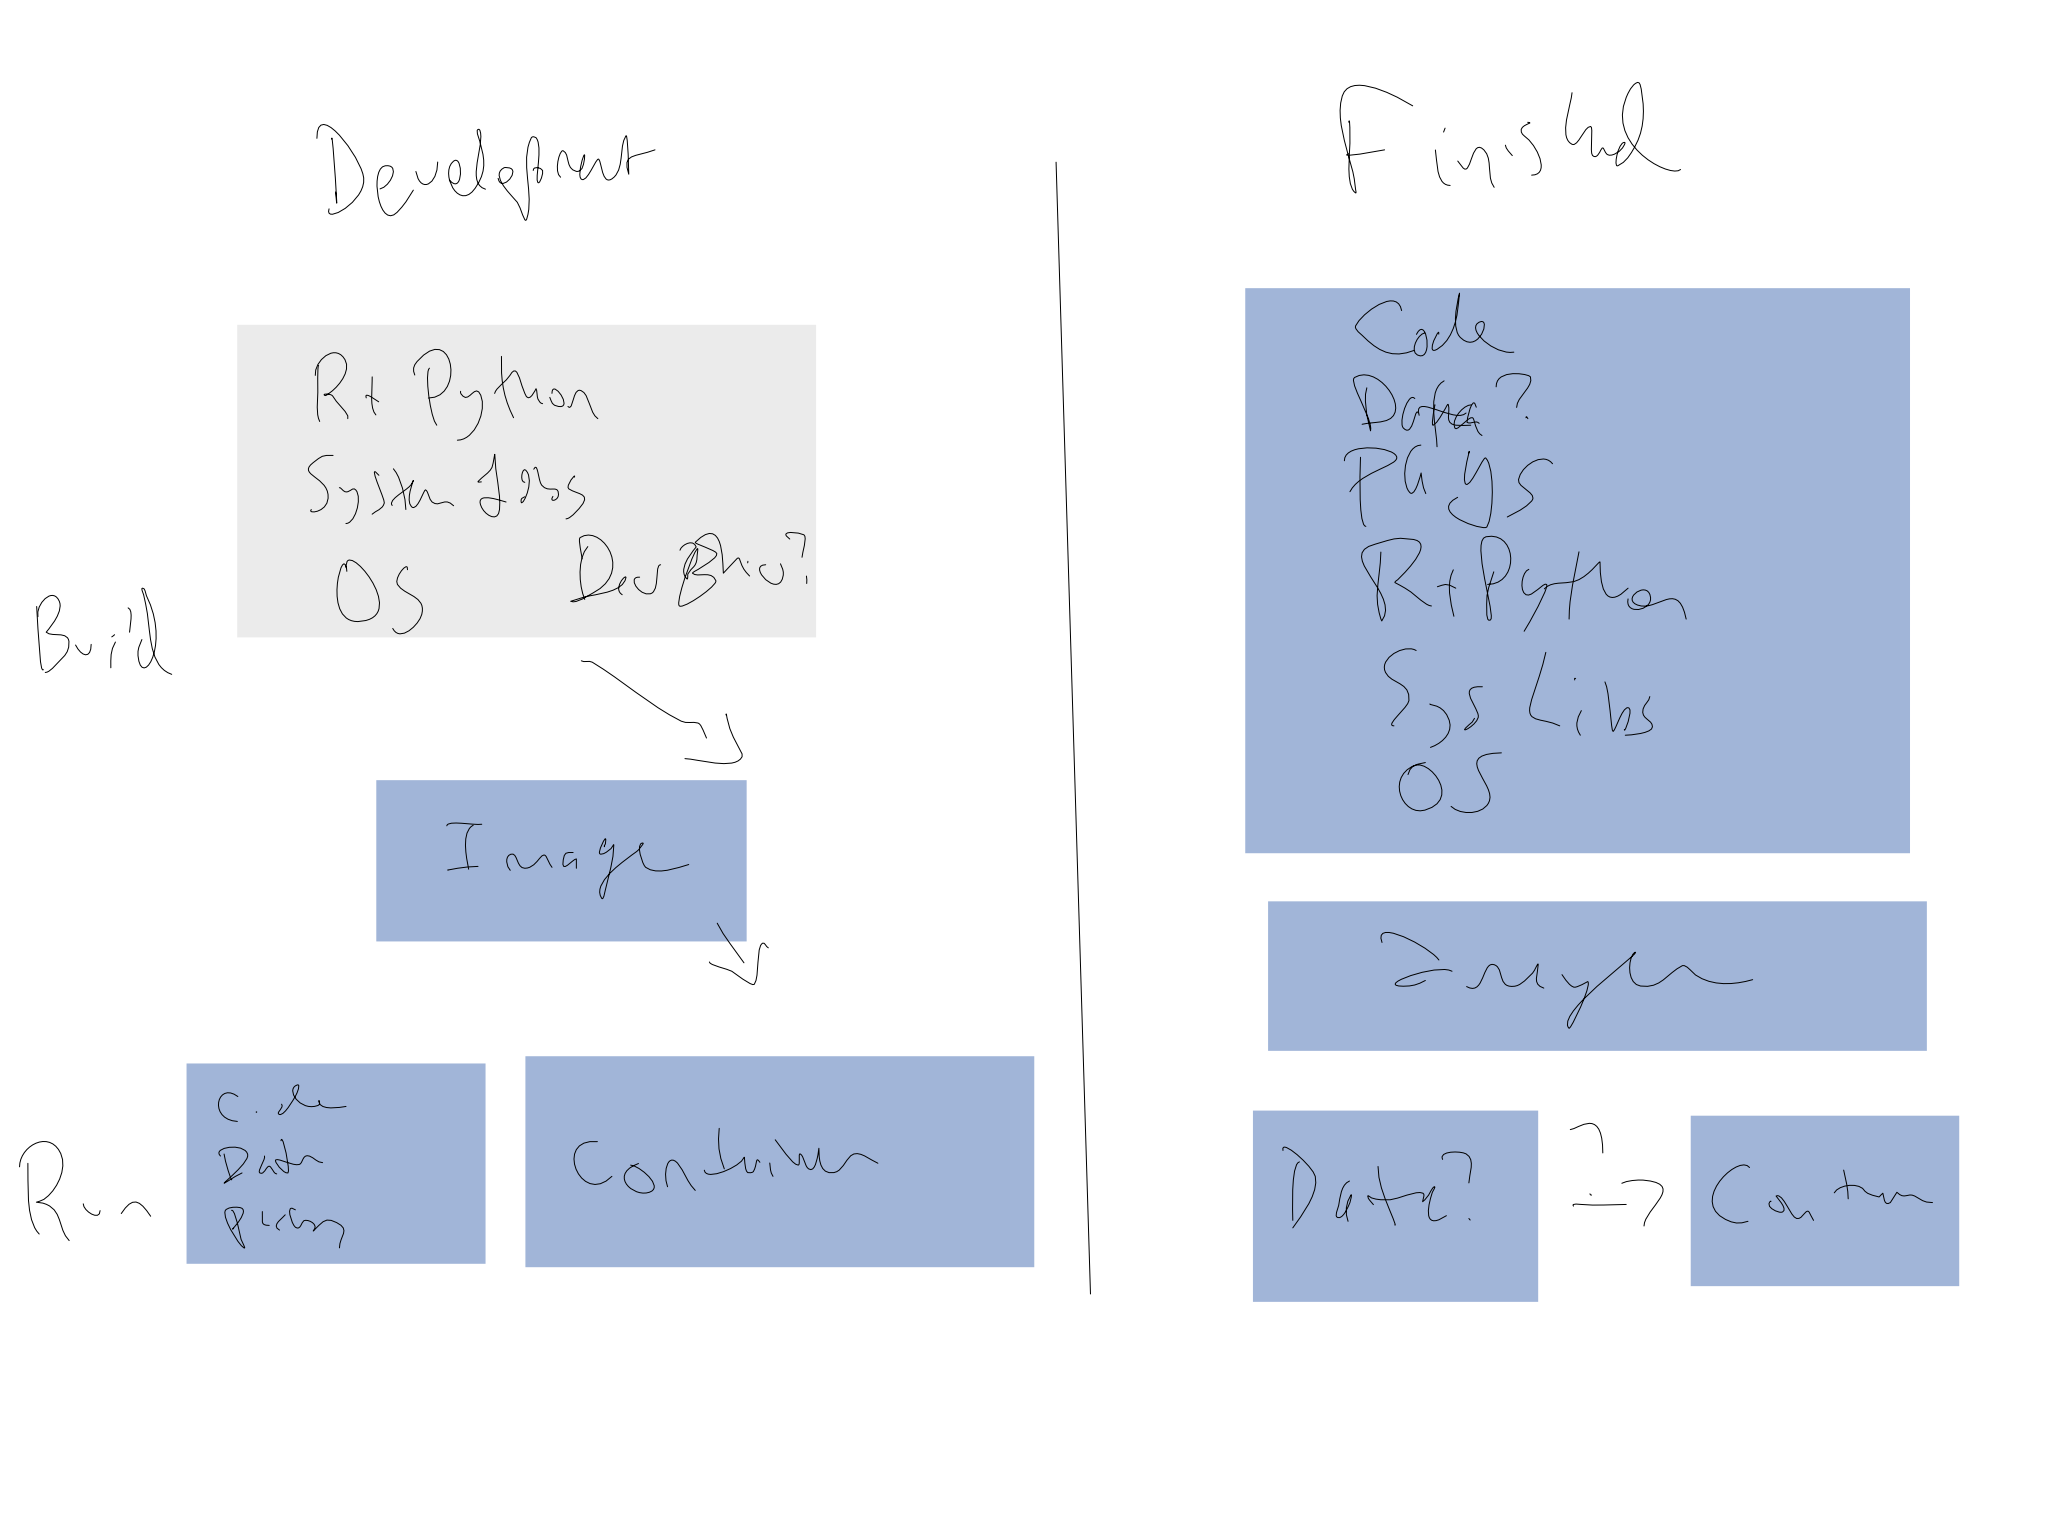 Development
Finished
R + Python
System Libs
OS
Build
Image
Code
Data
Run
Container
Code
Data?
R + Python
Sys Libs
OS
Image
Data?
?
Container